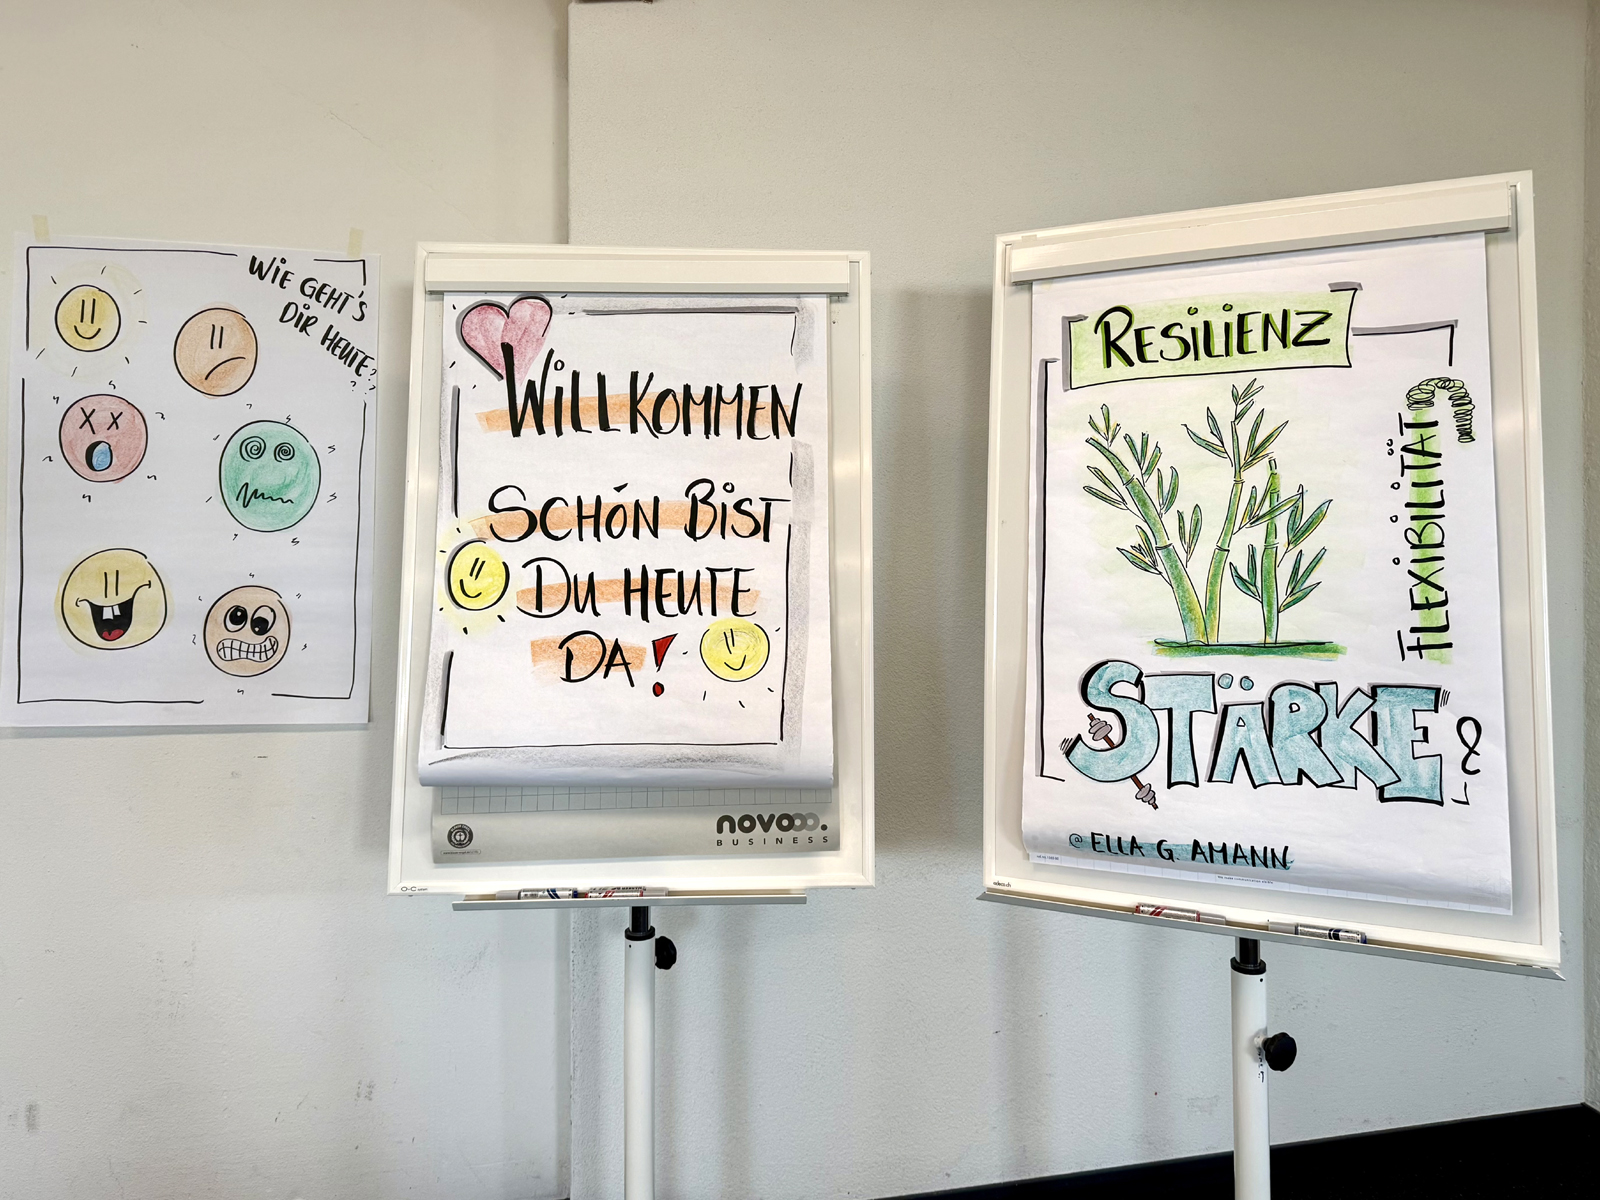 WIE GEHT'S
DIR HEUTE?
WILLKOMMEN
SCHÖN BIST
DU HEUTE
DA!
novooo.
BUSINESS
RESILIENZ
FLEXIBILITÄT
STÄRKE &
@ ELLA G. AMANN